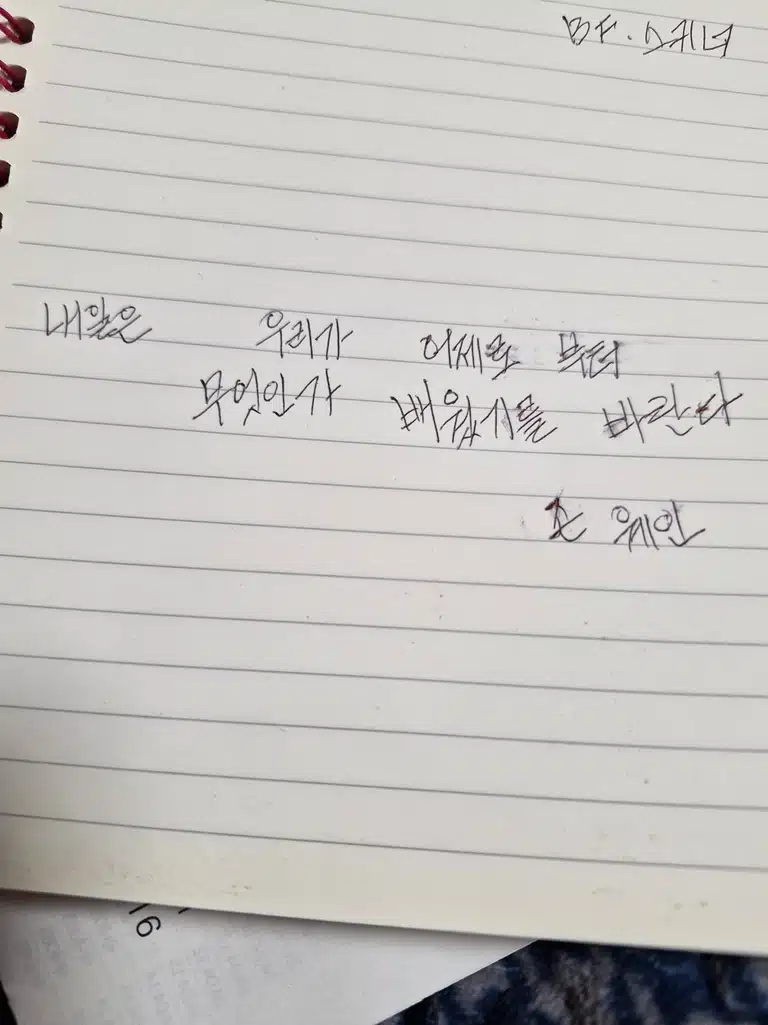 BF. 스키너
내일은 우리가 어제로 부터
무엇인가 배웠기를 바란다
존 웨인
16